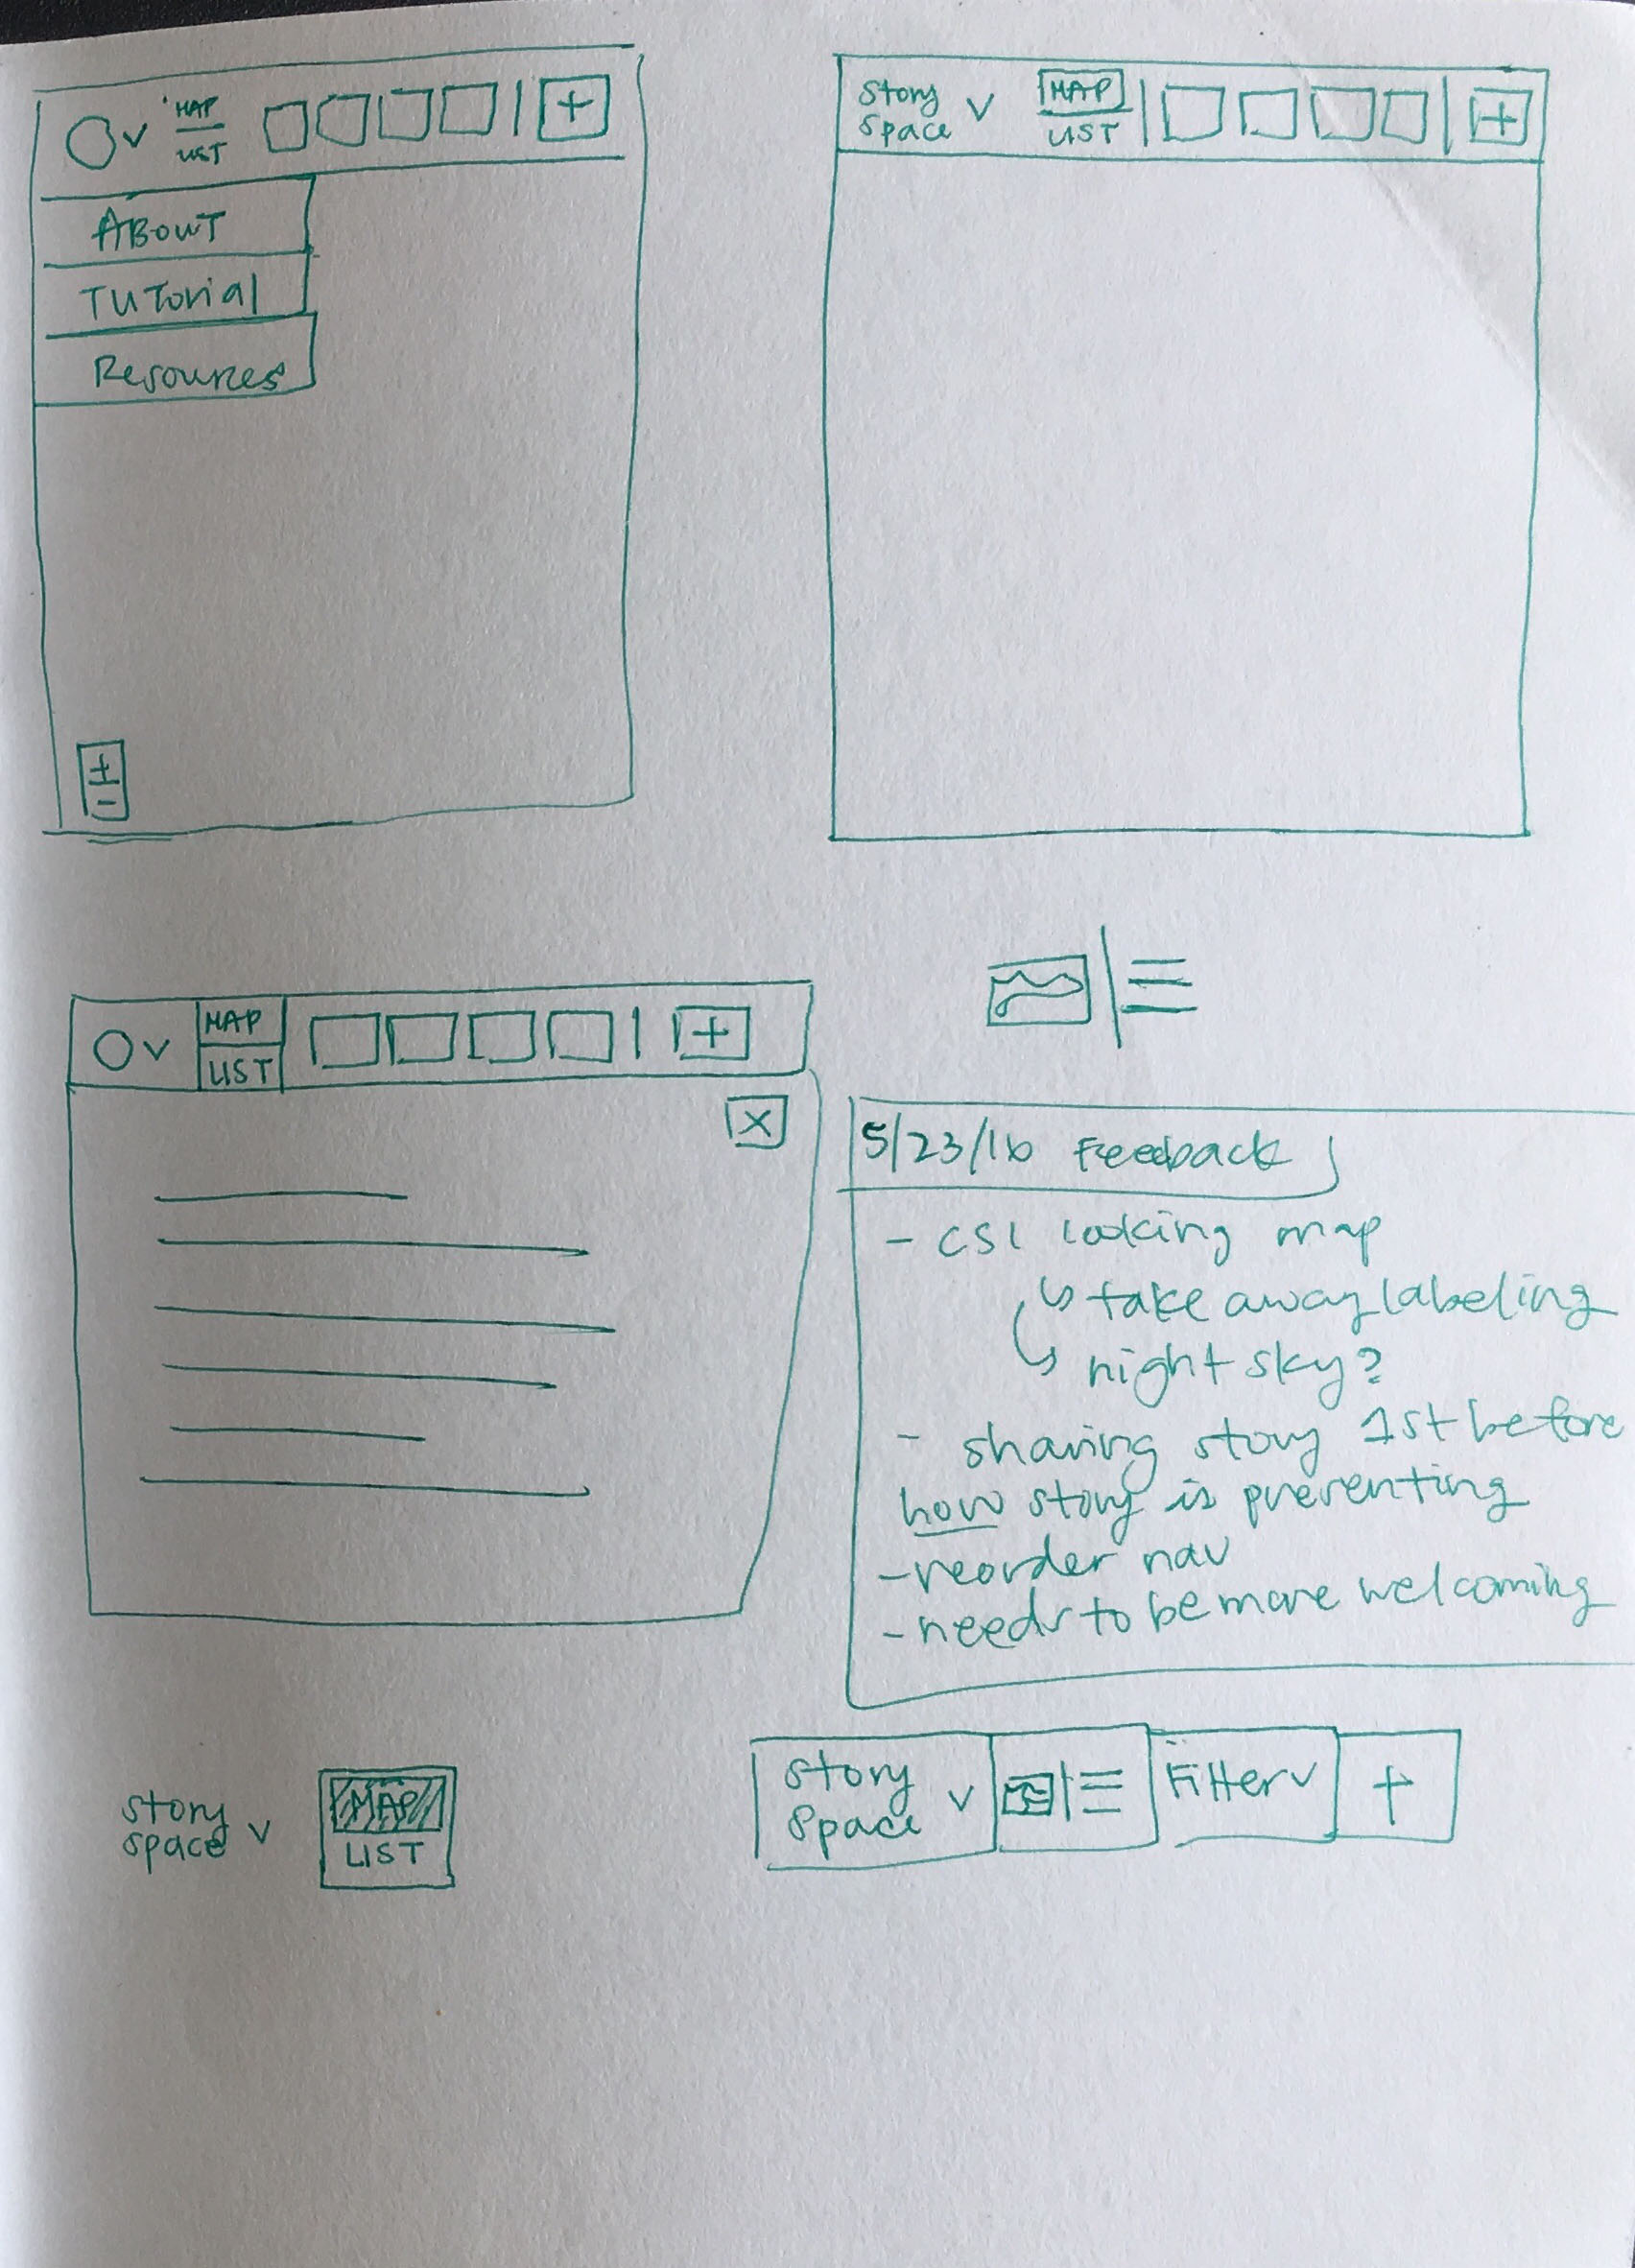 MAP
LIST
+
ABOUT
TUTorial
Resources
+
-
Story
Space v
MAP
LIST
+
MAP
LIST
+
X
5/23/16 Feedback
- CSI looking map
↳ take away labeling
↳ night sky?
- sharing story 1st before
how story is preventing
- reorder nav
- needs to be more welcoming
story
space v
MAP
LIST
Story
Space v
Filter v
+